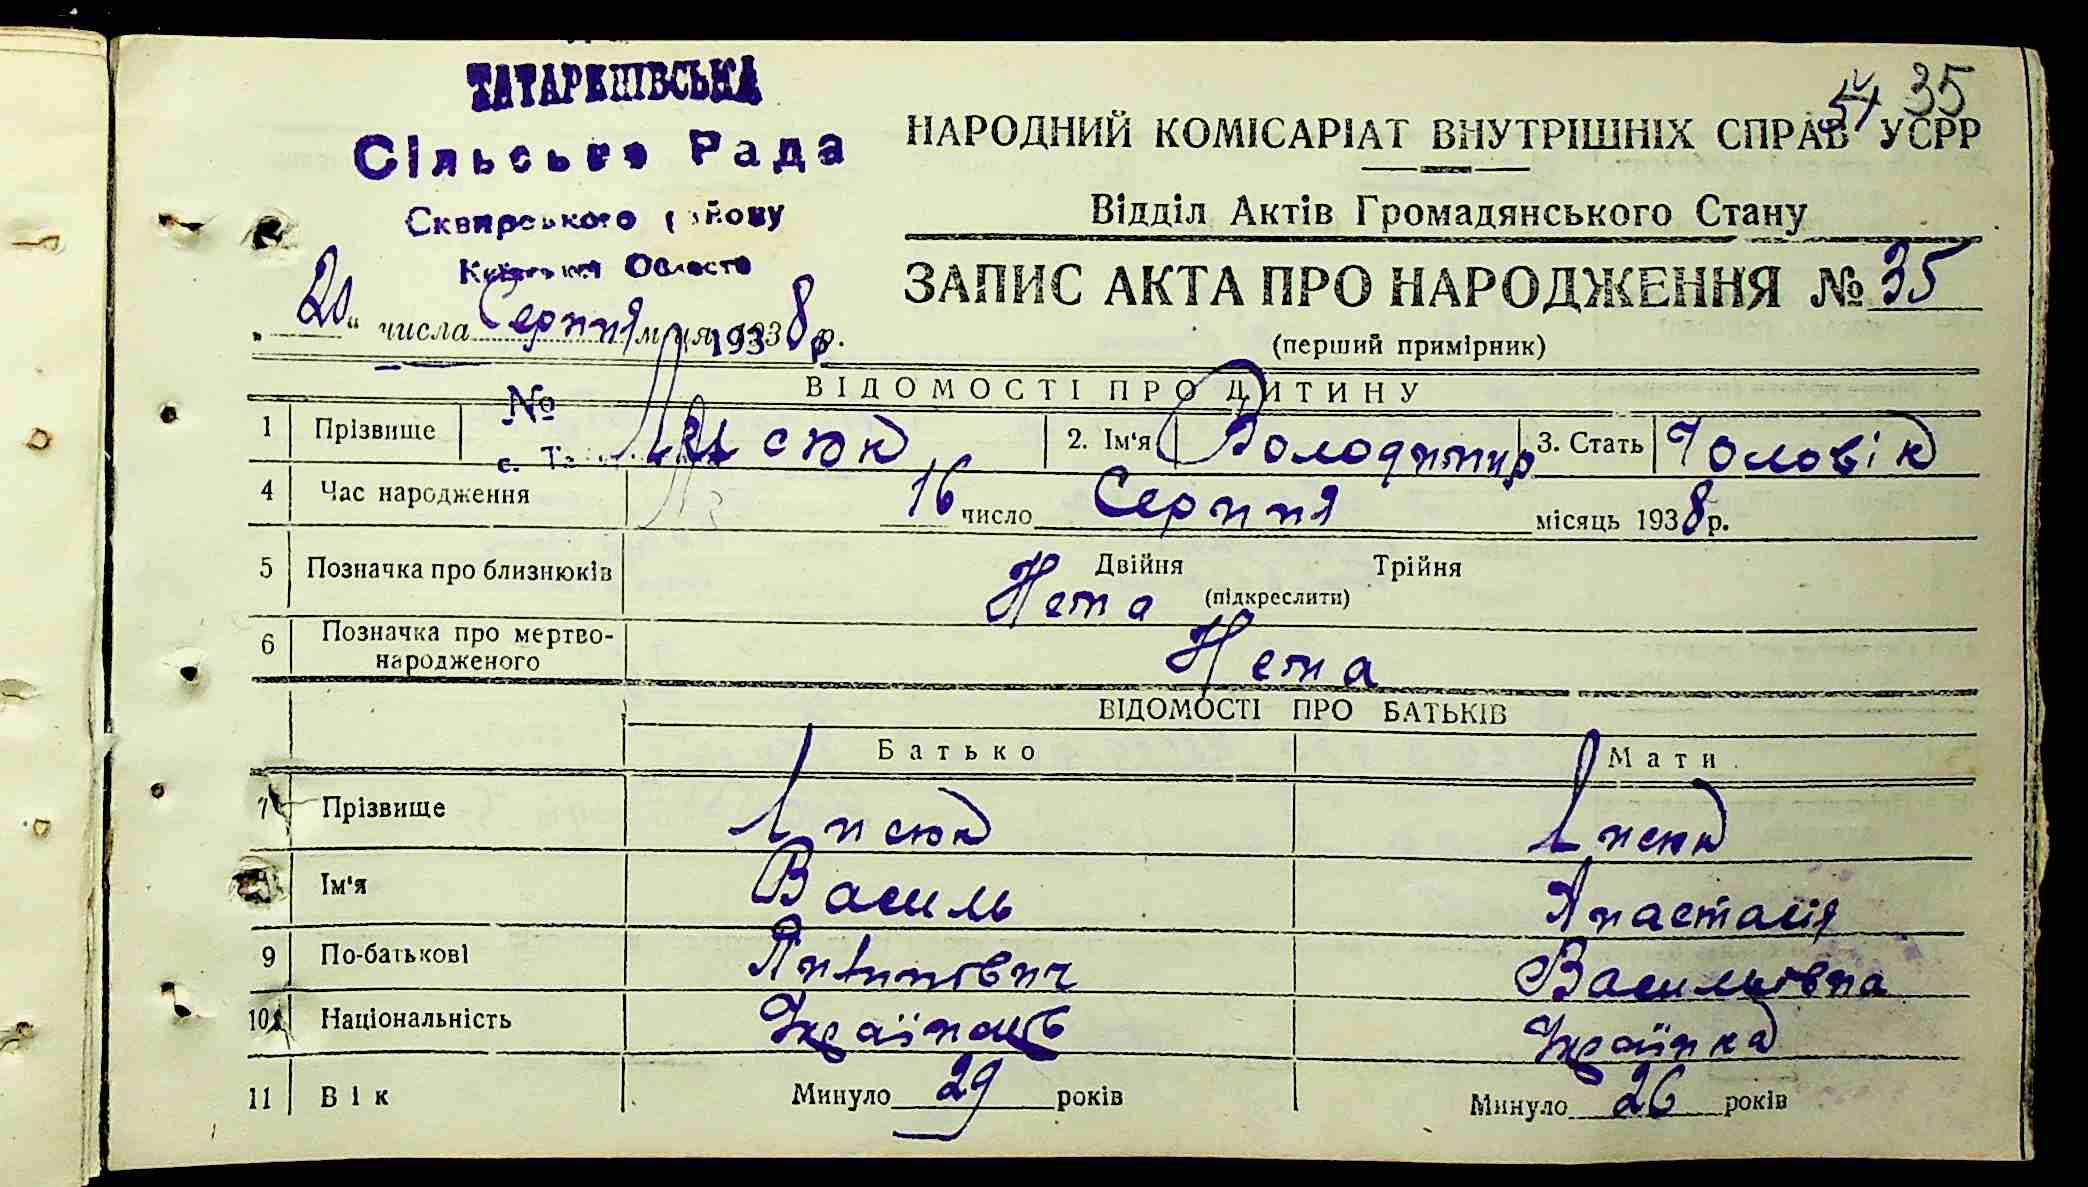 ТАТАРИНІВСЬКА
Сільська Рада
Сквирського району
Київської Області
54 35
НАРОДНИЙ КОМІСАРІАТ ВНУТРІШНІХ СПРАВ УСРР
Відділ Актів Громадянського Стану
ЗАПИС АКТА ПРО НАРОДЖЕННЯ № 35
(перший примірник)
„20“ числа Серпня м-ця 1938 р.
193 р
ВІДОМОСТІ ПРО ДИТИНУ
№
с.
1 Прізвище Лисюк 2. Ім'я Володимир 3. Стать Чоловік
4 Час народження 16 число Серпня місяць 1938 р.
5 Позначка про близнюків Двійня Трійня
Нема (підкреслити)
6 Позначка про мертво-
народженого Нема
ВІДОМОСТІ ПРО БАТЬКІВ
Батько Мати
7 Прізвище Лисюк Лисюк
Ім'я Василь Анастасія
9 По-батькові Васильовна
10 Національність Українець Українка
11 Вік Минуло 29 років Минуло 26 років